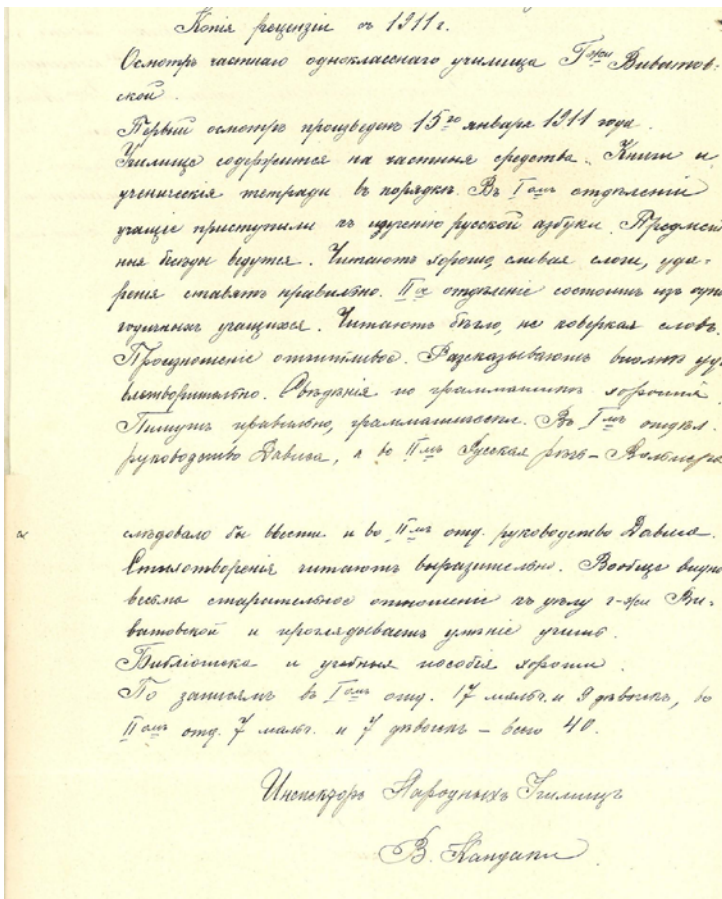 Копія рецензіи за 1911 г.
Осмотръ частнаго одноклассного училища Г-жи Виватов-
ской.
Первый осмотръ произведенъ 15го января 1911 года.
Училище содержится на частныя средства. Книги и
ученическія тетради въ порядкѣ. Въ Iомъ отдѣленіи
учащіе приступили къ изученію русской азбуки. Предмет
ныя бесѣды ведутся. Читаютъ хорошо, сливая слоги, уда-
ренія ставятъ правильно. IIе отдѣленіе состоитъ изъ одно
годичныхъ учащихся. Читаютъ бѣгло, не коверкая словъ.
Произношеніе отчетливое. Разсказываютъ вполнѣ удо
влетворительно. Свѣдѣнія по грамматикѣ хорошія.
Пишутъ правильно, грамматически. Въ Iмъ отдѣл.
руководство Дависа, а во IIмъ Русская рѣчь – Вольпера
слѣдовало бы ввести и во IIмъ отд. руководство Дависа.
Стихотворенія читаютъ выразительно. Вообще видно
весьма старательное отношеніе къ дѣлу г-жи Ви-
ватовской и проглядываетъ умѣніе учить.
Библіотека и учебныя пособія хороши.
По записямъ въ Iомъ отд. 17 мальч. и 9 дѣвочекъ, во
IIомъ отд. 7 мальч. и 7 дѣвочекъ – всего 40.
Инспекторъ Народныхъ Училищъ
В.